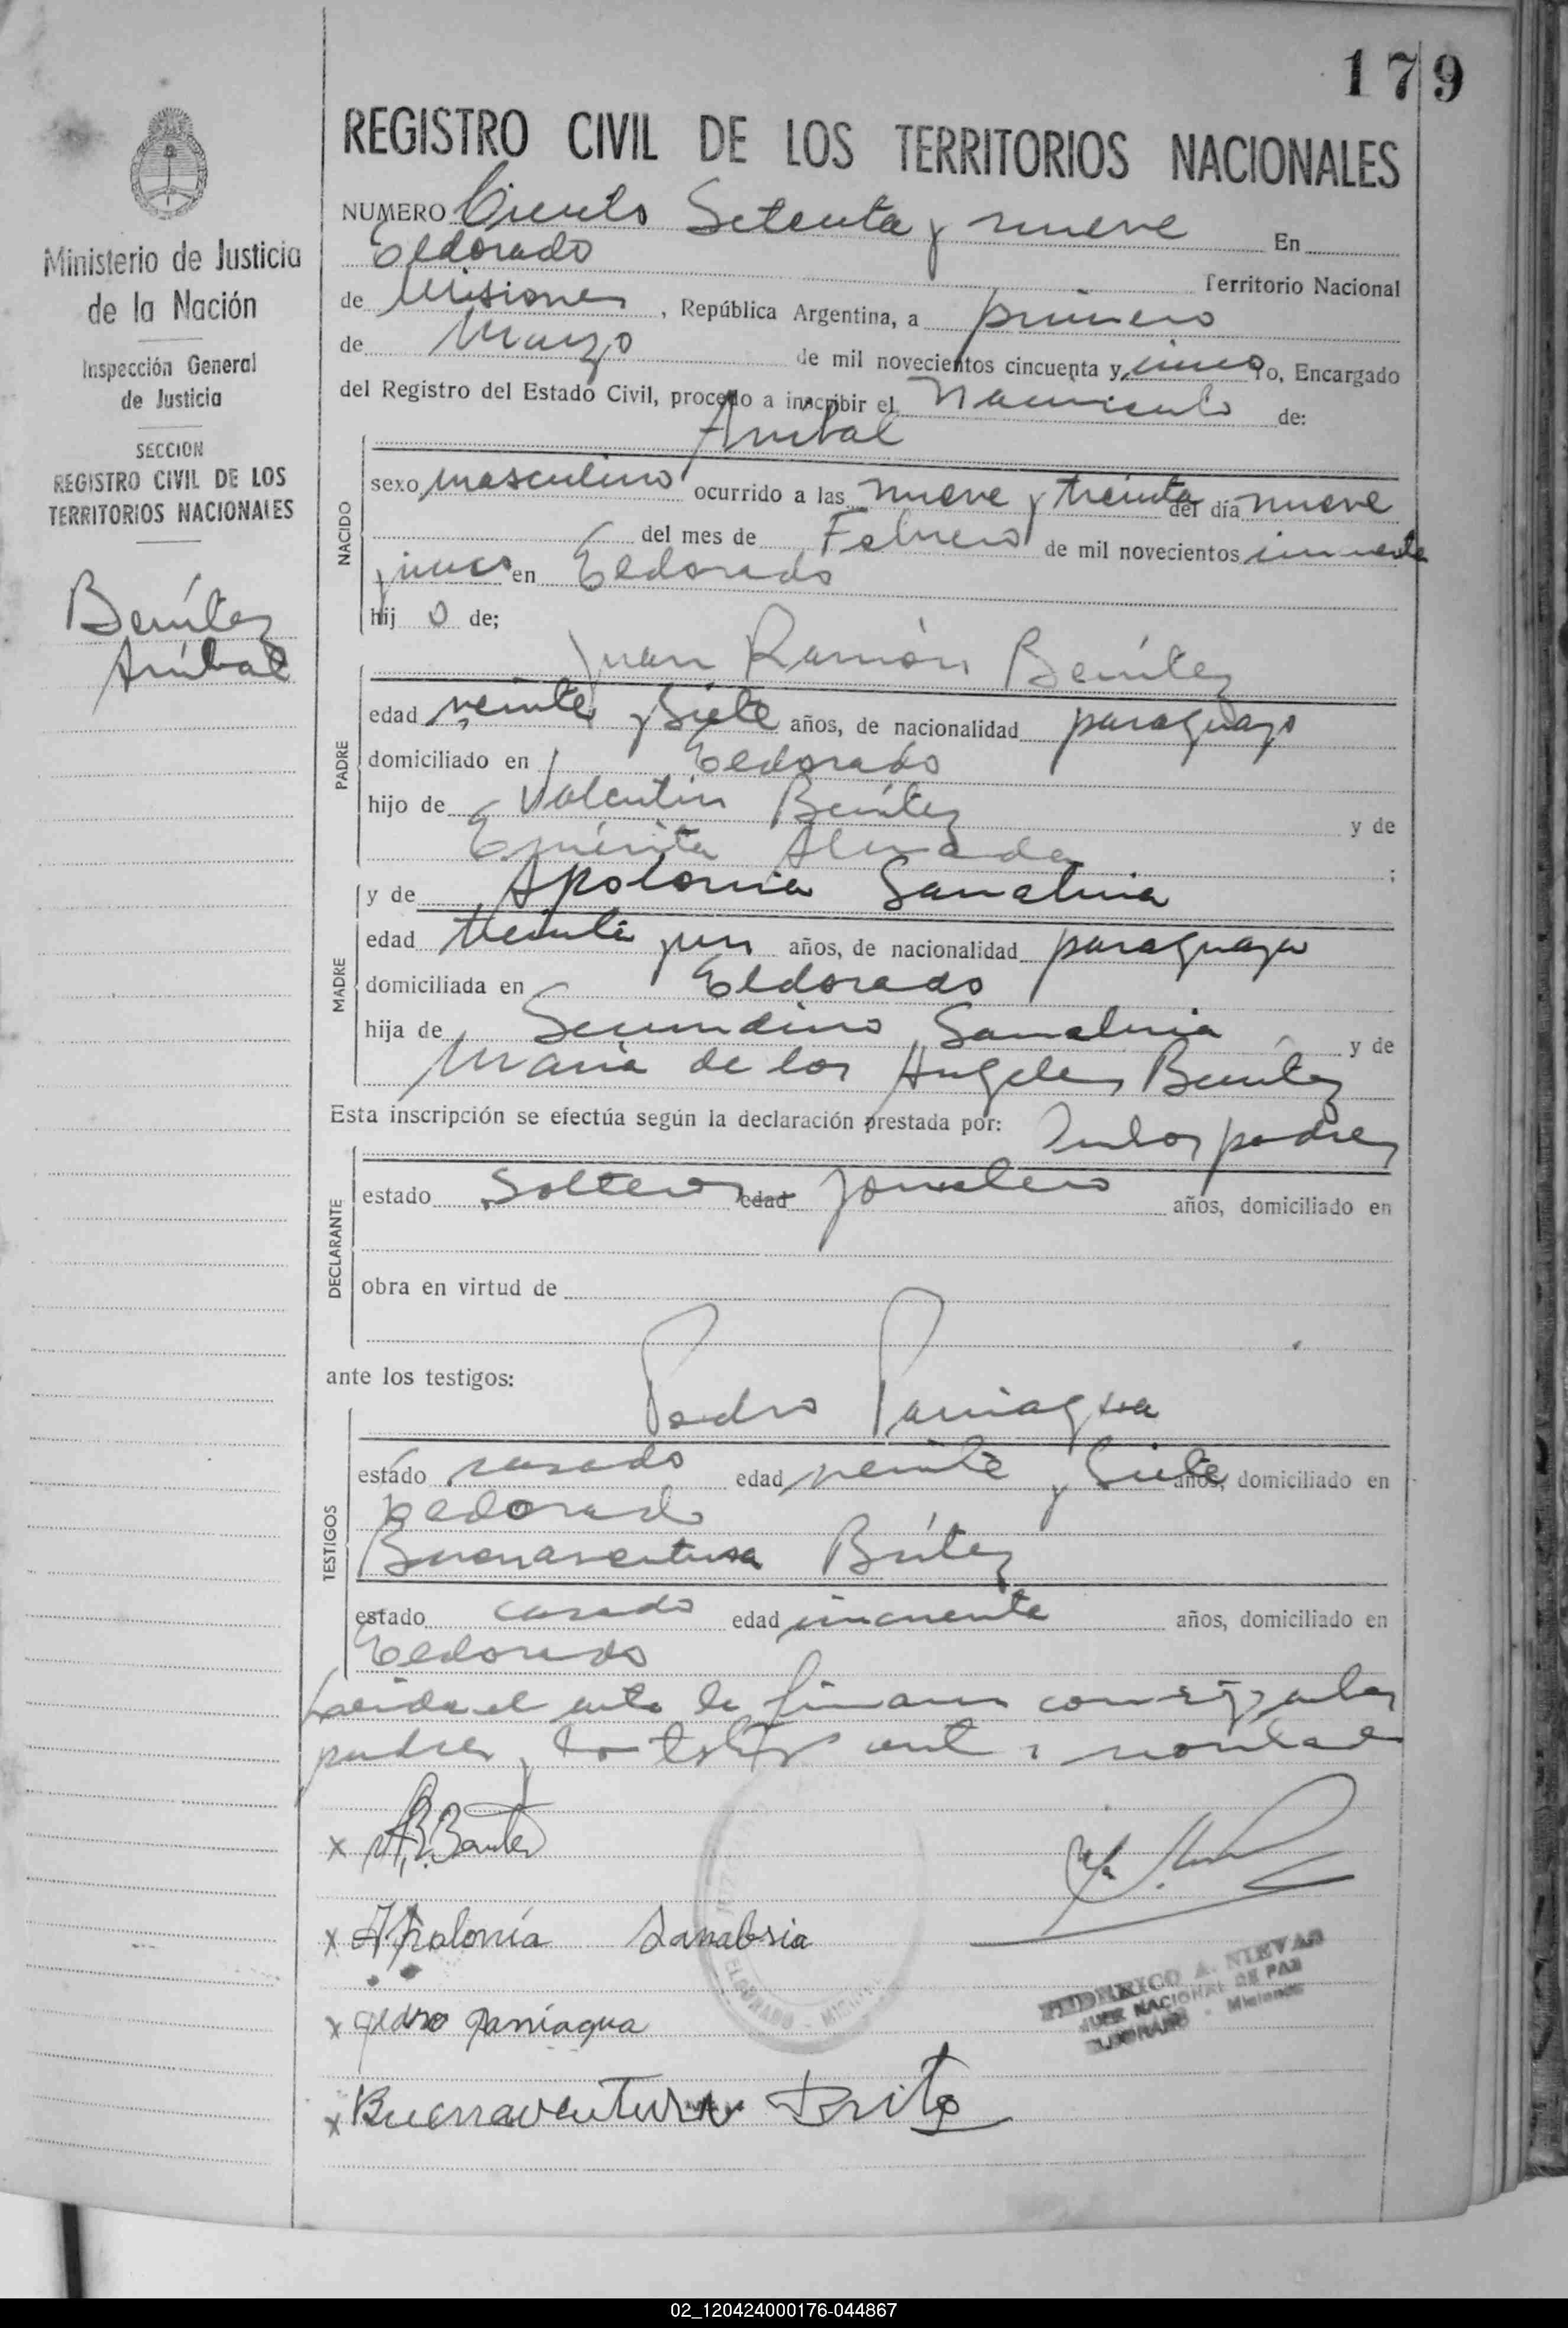 179
REGISTRO CIVIL DE LOS TERRITORIOS NACIONALES
Ministerio de Justicia
de la Nación
Inspección General
de Justicia
SECCION
REGISTRO CIVIL DE LOS
TERRITORIOS NACIONALES
Benítez
Aníbal
NUMERO Ciento Setenta y nueve En
Eldorado Territorio Nacional
de Misiones, República Argentina, a primero
de Marzo de mil novecientos cincuenta y cinco Yo, Encargado
del Registro del Estado Civil, procedo a inscribir el Nacimiento de:
Anibal
NACIDO
sexo masculino ocurrido a las nueve y treinta del día nueve
del mes de Febrero de mil novecientos cincuenta
y cinco en Eldorado
hij o de;
Juan Ramón Benítez
PADRE
edad veinte y Siete años, de nacionalidad paraguayo
domiciliado en Eldorado
hijo de Valentin Benítez y de
Emérita Alvarada;
y de Apolonia Sanabria
MADRE
edad treinta y un años, de nacionalidad paraguaya
domiciliada en Eldorado
hija de Secundino Sanabria y de
Maria de los Angeles Benítez
Esta inscripción se efectúa según la declaración prestada por: Ambos padres
DECLARANTE
estado Solteros edad jornalero años, domiciliado en
obra en virtud de
ante los testigos:
Pedro Paniagua
TESTIGOS
estado casado edad veinte y Siete años, domiciliado en
Eldorado
Buenaventura Brítez
estado casado edad cincuenta años, domiciliado en
Eldorado
Leida el acta la firman conmigo los
padres y los testigos
x Benitez
x Apolonía Sanabria
x pedro paniagua
x Buenaventura Brite
ELDORADO - MISIONES
FEDERICO A. NIEVAS
JUEZ NACIONAL DE PAZ
ELDORADO - Misiones
02_120424000176-044867